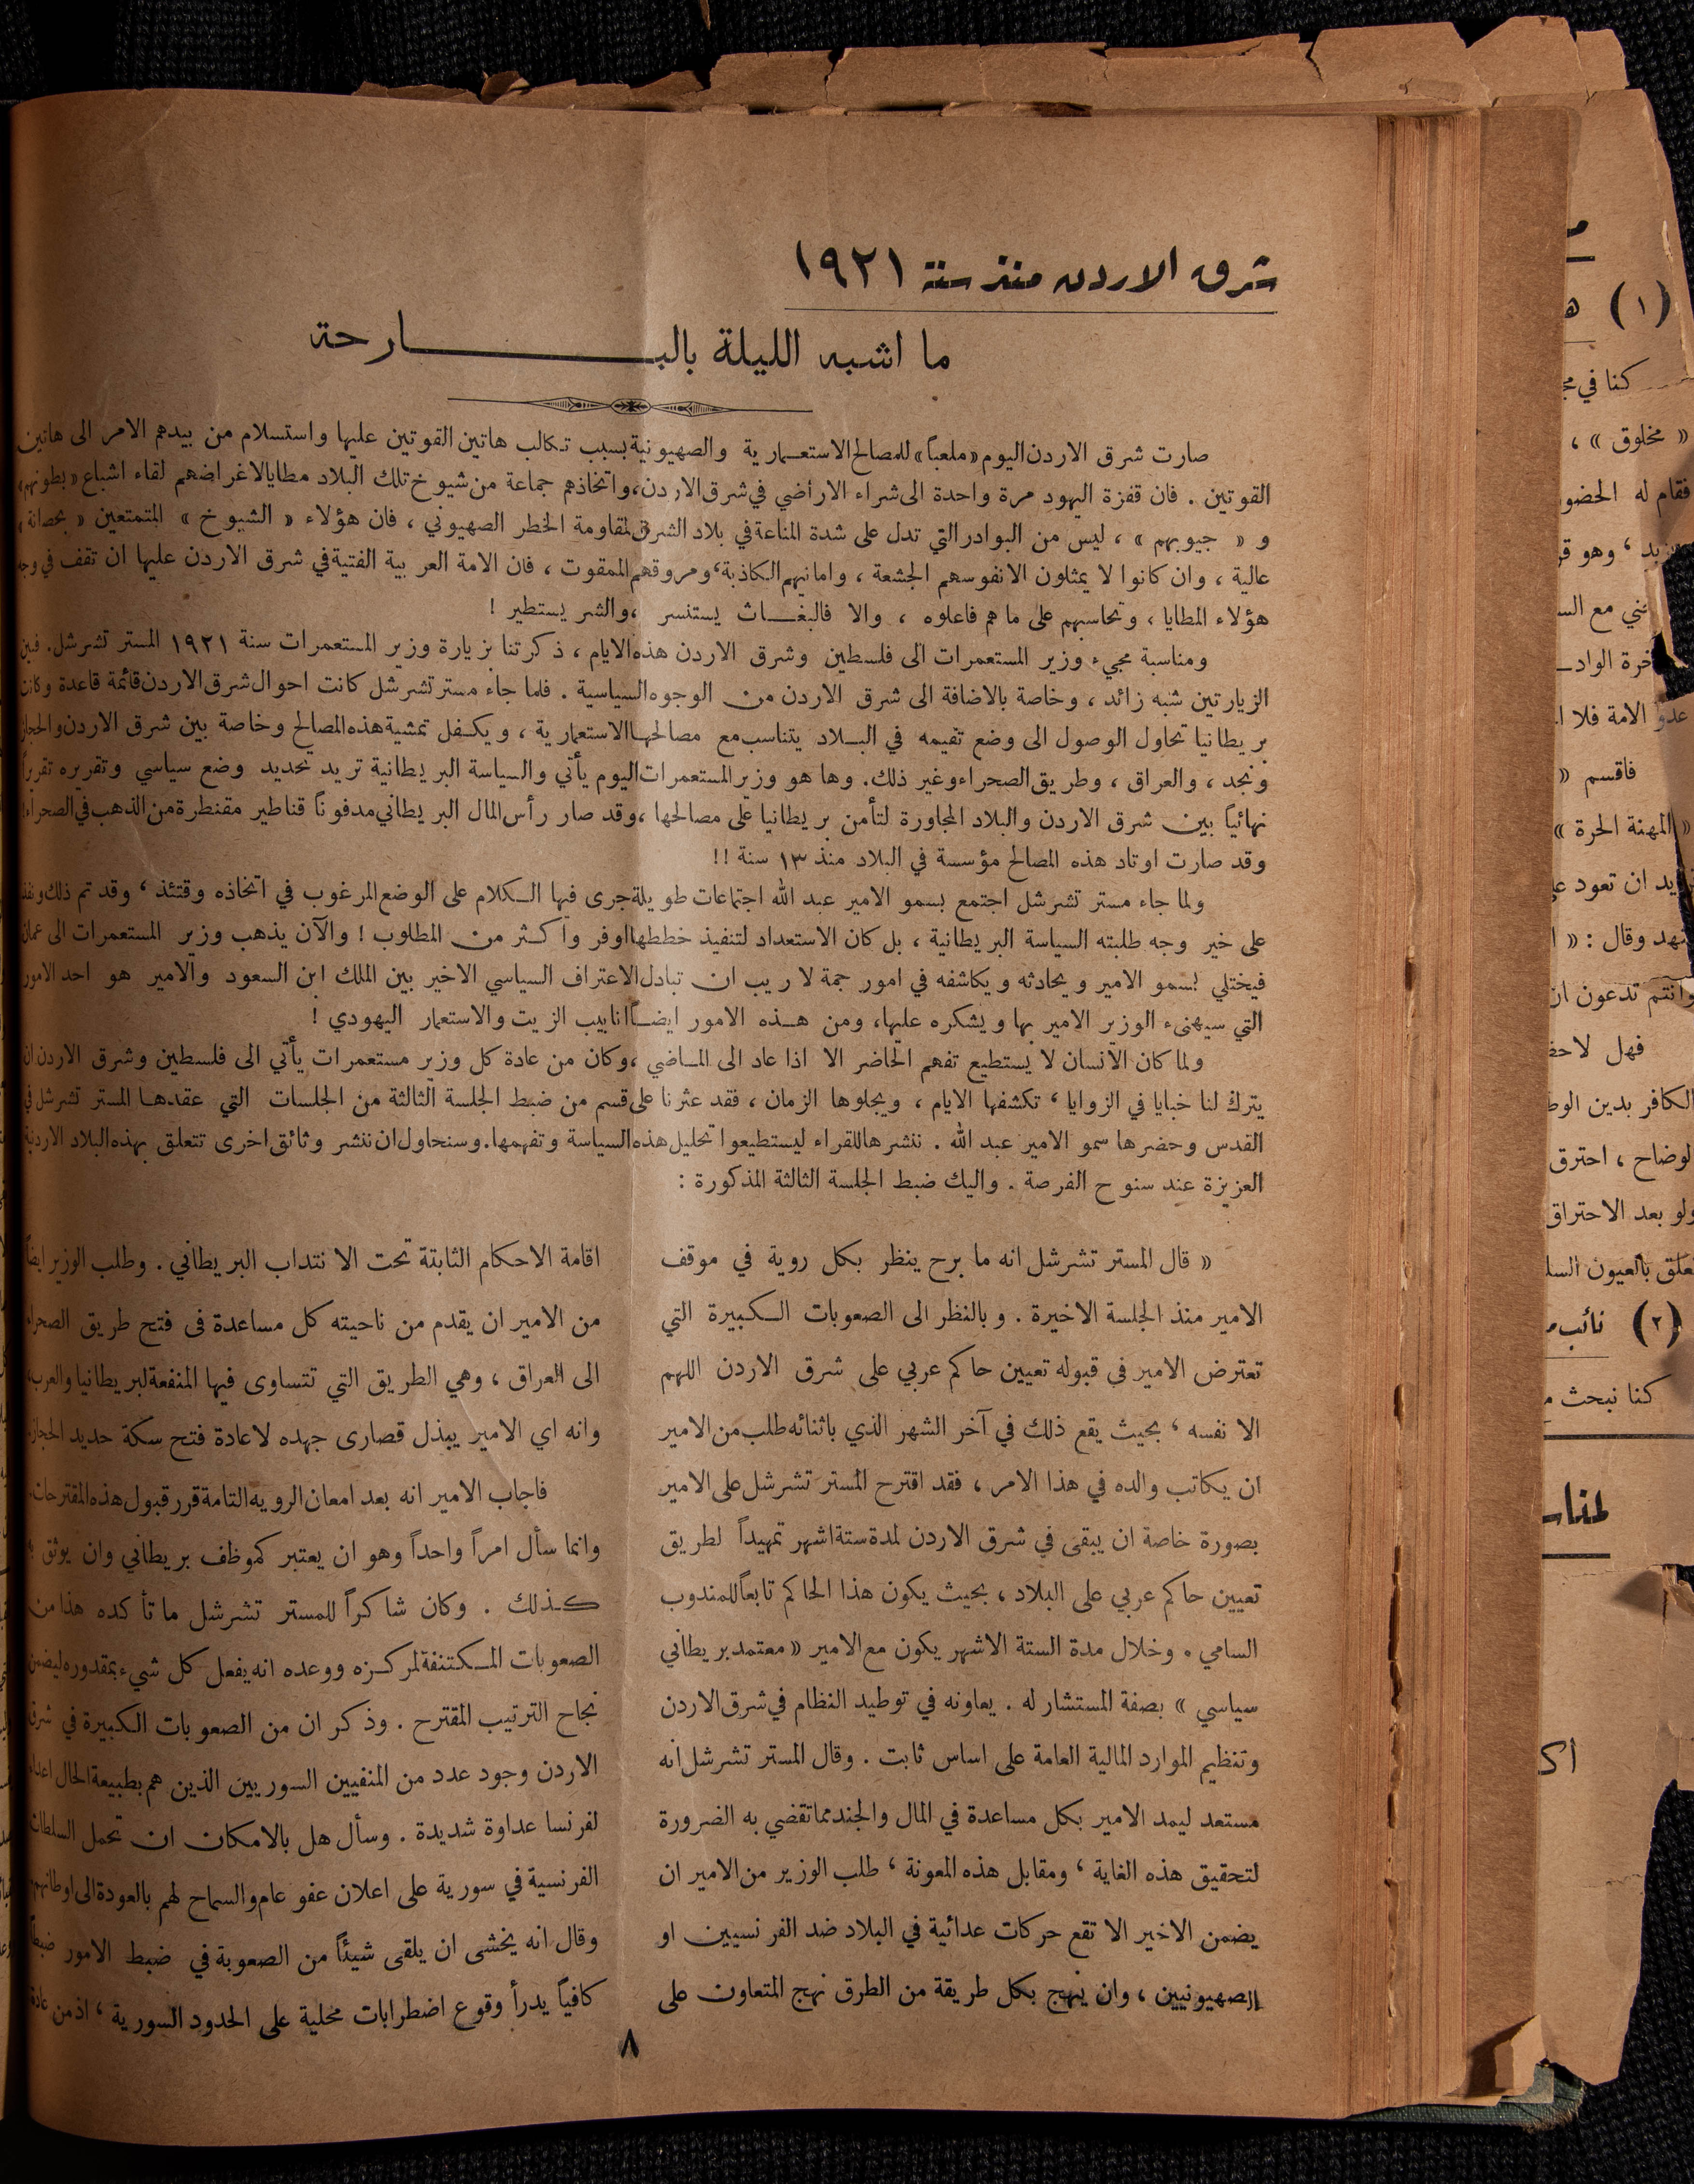 شرق الاردن منذ سنة ١٩٢١
ما اشبه الليلة بالبـــــارحة
صارت شرق الاردن اليوم «ملعباً» للمصالح الاستعمارية والصهيونية بسبب تكالب هاتين القوتين عليها واستسلام من بيدهم الامر الى هاتين
القوتين . فان قفزة اليهود مرة واحدة الى شراء الاراضي في شرق الاردن، واتخاذهم جماعة من شيوخ تلك البلاد مطايا لاغراضهم لقاء اشباع «بطونهم»
و « جيوبهم » ، ليس من البوادر التي تدل على شدة المناعة في بلاد الشرق لمقاومة الخطر الصهيوني ، فان هؤلاء « الشيوخ » المتمتعين « بحصانة »
عالية ، وان كانوا لا يمثلون الا نفوسهم الجشعة ، وامانيهم الكاذبة، ومروقهم الممقوت ، فان الامة العربية الفتية في شرق الاردن عليها ان تقف في وجه
هؤلاء المطايا ، وتحاسبهم على ما هم فاعلوه ، والا فالبغـاث يستنسر ، والشر يستطير !
ومناسبة مجيء وزير المستعمرات الى فلسطين وشرق الاردن هذه الايام ، ذكرتنا بزيارة وزير المستعمرات سنة ١٩٢١ المستر تشرشل. فبين
الزيارتين شبه زائد ، وخاصة بالاضافة الى شرق الاردن من الوجوه السياسية . فلما جاء مستر تشرشل كانت احوال شرق الاردن قائمة قاعدة وكانت
بريطانيا تحاول الوصول الى وضع تقيمه في البـلاد يتناسب مع مصالحها الاستعمارية ، ويكـفل تمشية هذه المصالح وخاصة بين شرق الاردن والحجاز
ونجد ، والعراق ، وطريق الصحراء وغير ذلك. وها هو وزير المستعمرات اليوم يأتي والسياسة البريطانية تريد تحديد وضع سياسي وتقريره تقريراً
نهائياً بين شرق الاردن والبلاد المجاورة لتأمن بريطانيا على مصالحها ، وقد صار رأس المال البريطاني مدفوناً قناطير مقنطرة من الذهب في الصحراء!
وقد صارت اوتاد هذه المصالح مؤسسة في البلاد منذ ١٣ سنة !!
ولما جاء مستر تشرشل اجتمع بسمو الامير عبد الله اجتماعات طويلة جرى فيها الـكلام على الوضع المرغوب في اتخاذه وقتئذ ، وقد تم ذلك ونفذ
على خير وجه طلبته السياسة البريطانية ، بل كان الاستعداد لتنفيذ خططها اوفر وأكـثر من المطلوب ! والآن يذهب وزير المستعمرات الى عمان
فيختلي بسمو الامير ويحادثه ويكاشفه في امور جمة لا ريب ان تبادل الاعتراف السياسي الاخير بين الملك ابن السعود والامير هو احد الامور
التي سيهنىء الوزير الامير بها ويشكره عليها، ومن هـذه الامور ايضـاً انابيب الزيت والاستعمار اليهودي !
ولما كان الانسان لا يستطيع تفهم الحاضر الا اذا عاد الى المـاضي ، وكان من عادة كل وزير مستعمرات يأتي الى فلسطين وشرق الاردن ان
يترك لنا خبايا في الزوايا ، تكشفها الايام ، ويجلوها الزمان ، فقد عثرنا على قسم من ضبط الجلسة الثالثة من الجلسات التي عقدهـا المستر تشرشل في
القدس وحضرها سمو الامير عبد الله . ننشرها للقراء ليستطيعوا تحليل هذه السياسة وتفهمها. وسنحاول ان ننشر وثائق اخرى تتعلق بهذه البلاد الاردنية
العزيزة عند سنوح الفرصة . واليك ضبط الجلسة الثالثة المذكورة :
« قال المستر تشرشل انه ما برح ينظر بكل روية في موقف
الامير منذ الجلسة الاخيرة . وبالنظر الى الصعوبات الـكبيرة التي
تعترض الامير في قبوله تعيين حاكم عربي على شرق الاردن اللهم
الا نفسه ، بحيث يقع ذلك في آخر الشهر الذي باثنائه طلب من الامير
ان يكاتب والده في هذا الامر ، فقد اقترح المستر تشرشل على الامير
بصورة خاصة ان يبقى في شرق الاردن لمدة ستة اشهر تمهيداً لطريق
تعيين حاكم عربي على البلاد ، بحيث يكون هذا الحاكم تابعاً للمندوب
السامي . وخلال مدة الستة الاشهر يكون مع الامير « معتمد بريطاني
سياسي » بصفة المستشار له . يعاونه في توطيد النظام في شرق الاردن
وتنظيم الموارد المالية العامة على اساس ثابت . وقال المستر تشرشل انه
مستعد ليمد الامير بكل مساعدة في المال والجند مما تقضي به الضرورة
لتحقيق هذه الغاية ، ومقابل هذه المعونة ، طلب الوزير من الامير ان
يضمن الاخير الا تقع حركات عدائية في البلاد ضد الفرنسيين او
الصهيونيين ، وان ينهج بكل طريقة من الطرق نهج المتعاون على
اقامة الاحكام الثابتة تحت الانتداب البريطاني . وطلب الوزير ايضاً
من الامير ان يقدم من ناحيته كل مساعدة في فتح طريق الصحراء
الى العراق ، وهي الطريق التي تتساوى فيها المنفعة لبريطانيا والعرب
وانه اي الامير يبذل قصارى جهده لاعادة فتح سكة حديد الحجاز
فاجاب الامير انه بعد امعان الرويه التامة قرر قبول هذه المقترحات
وانما سأل امراً واحداً وهو ان يعتبر كموظف بريطاني وان يوثق به
كـذلك . وكان شاكراً للمستر تشرشل ما تأكده هذا من
الصعوبات المـكتنفة لمركـزه ووعده انه يفعل كل شيء بمقدوره ليضمن
نجاح الترتيب المقترح . وذكر ان من الصعوبات الكبيرة في شرق
الاردن وجود عدد من المنفيين السوريين الذين هم بطبيعة الحال اعداء
لفرنسا عداوة شديدة . وسأل هل بالامكان ان تحمل السلطات
الفرنسية في سورية على اعلان عفو عام والسماح لهم بالعودة الى اوطانهم
وقال انه يخشى ان يلقى شيئاً من الصعوبة في ضبط الامور ضبطاً
كافياً يدرأ وقوع اضطرابات محلية على الحدود السورية ، اذ من عادة
٨
(١)
كنا في
« مخلوق » ،
فقام له الحضو
، وهو
ثني مع
خرة
عدو الامة فلا
فاقسم «
« المهنة الحرة »
يد ان تعود
وقال : «
وانتم تدعون ان
فهل
الكافر بدين
لوضاح ، احترق
ولو بعد الاحتراق
بالعيون
(٢) نائب
كنا نبحث